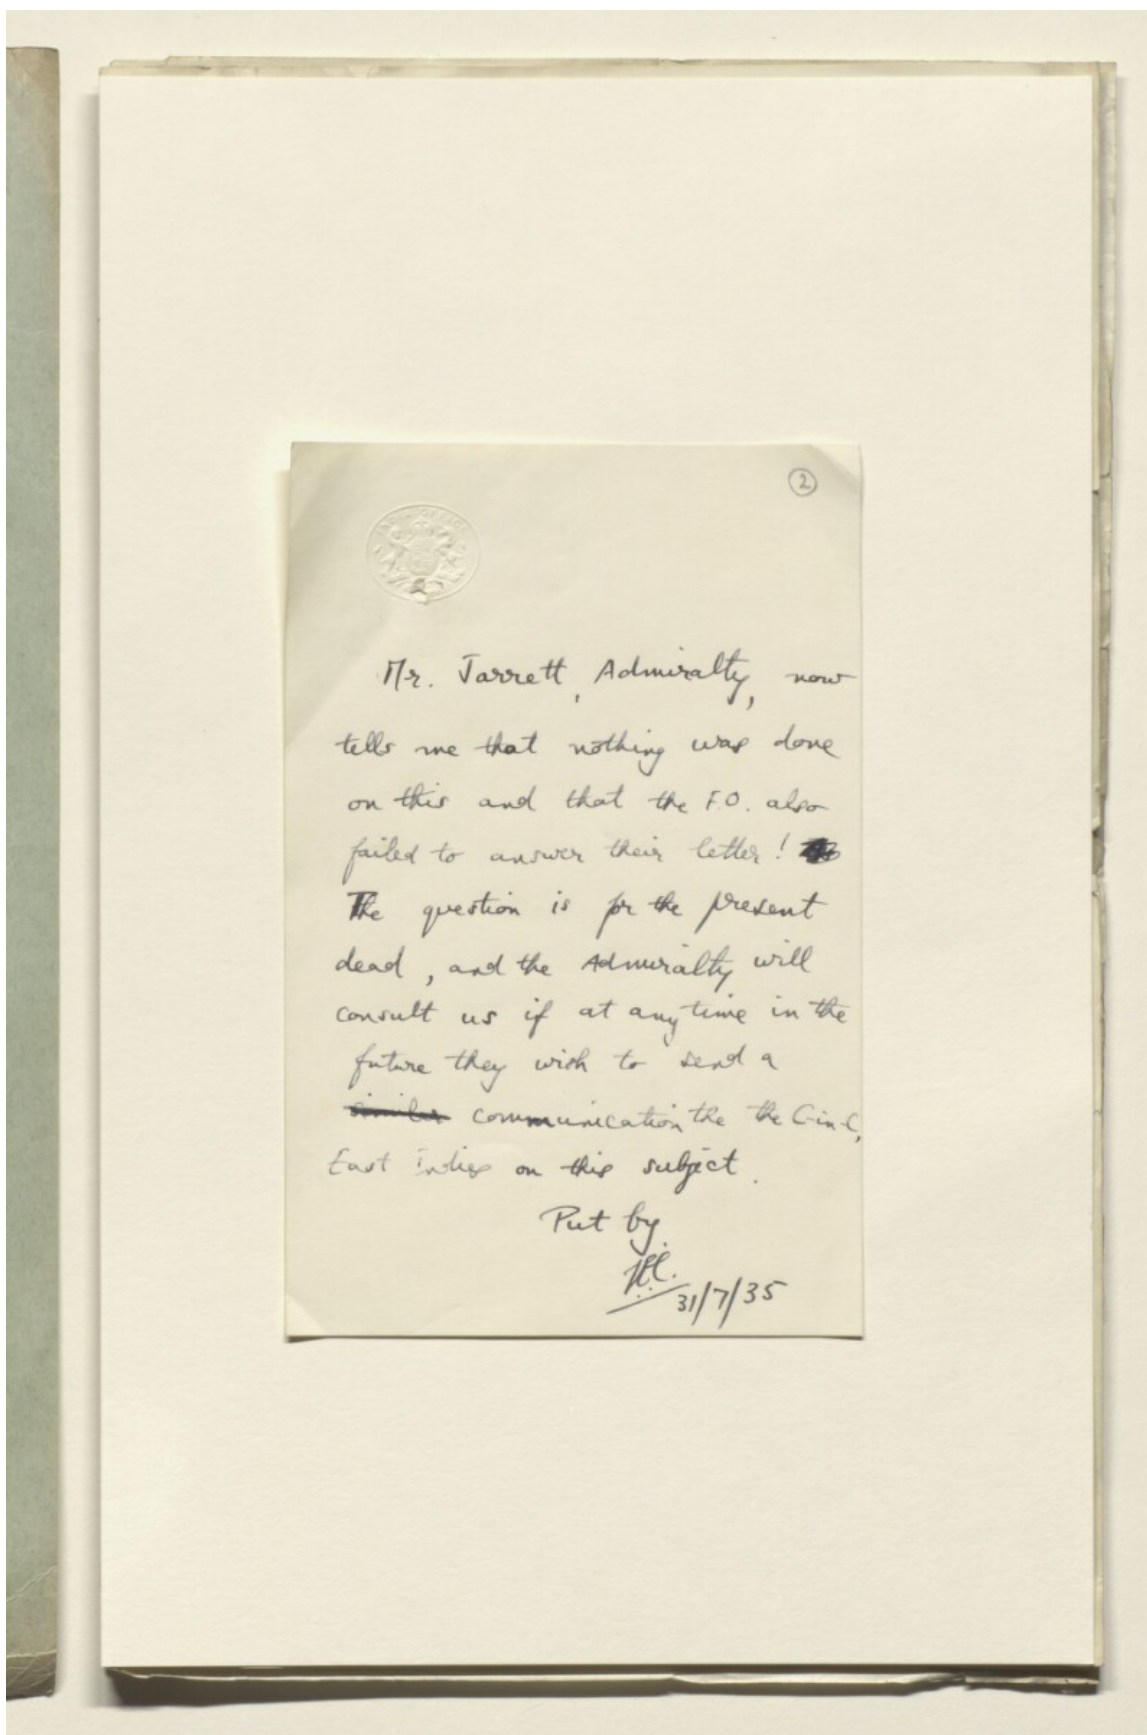 2
INDIA OFFICE
Mr. Jarrett, Admiralty, now
tells me that nothing was done
on this and that the F.O. also
failed to answer their letter!
The question is for the present
dead, and the Admiralty will
consult us if at any time in the
future they wish to send a
similar communication the the C-in-C,
East Indies on this subject.
Put by
31/7/35